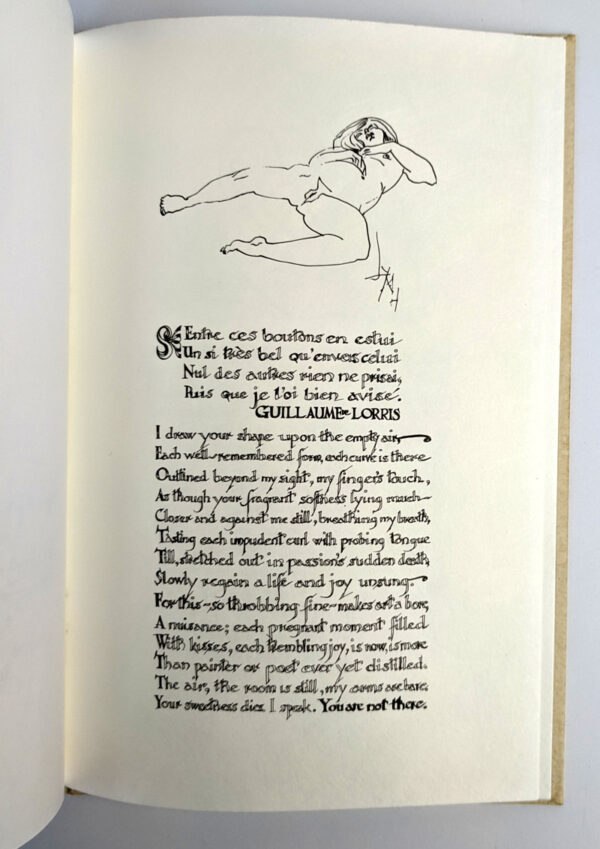 Entre ces boutons en eslui
Un si très bel qu'envers celui
Nul des autres rien ne prisai,
Puis que je l'oi bien avisé.
GUILLAUME de LORRIS
I draw your shape upon the empty air
Each well-remembered form, each curve is there
Outlined beyond my sight, my finger's touch,
As though your fragrant softness lying much
Closer and against me still, breathing my breath,
Tasting each impudent curl with probing tongue
Till, stretched out in passion's sudden death,
Slowly regain a life and joy unsung.
For this—so throbbing fine—makes art a bore,
A nuisance; each pregnant moment filled
With kisses, each trembling joy, is now, is more
Than painter or poet ever yet distilled.
The air, the room is still, my arms are bare,
Your sweetness dies I speak. You are not there.